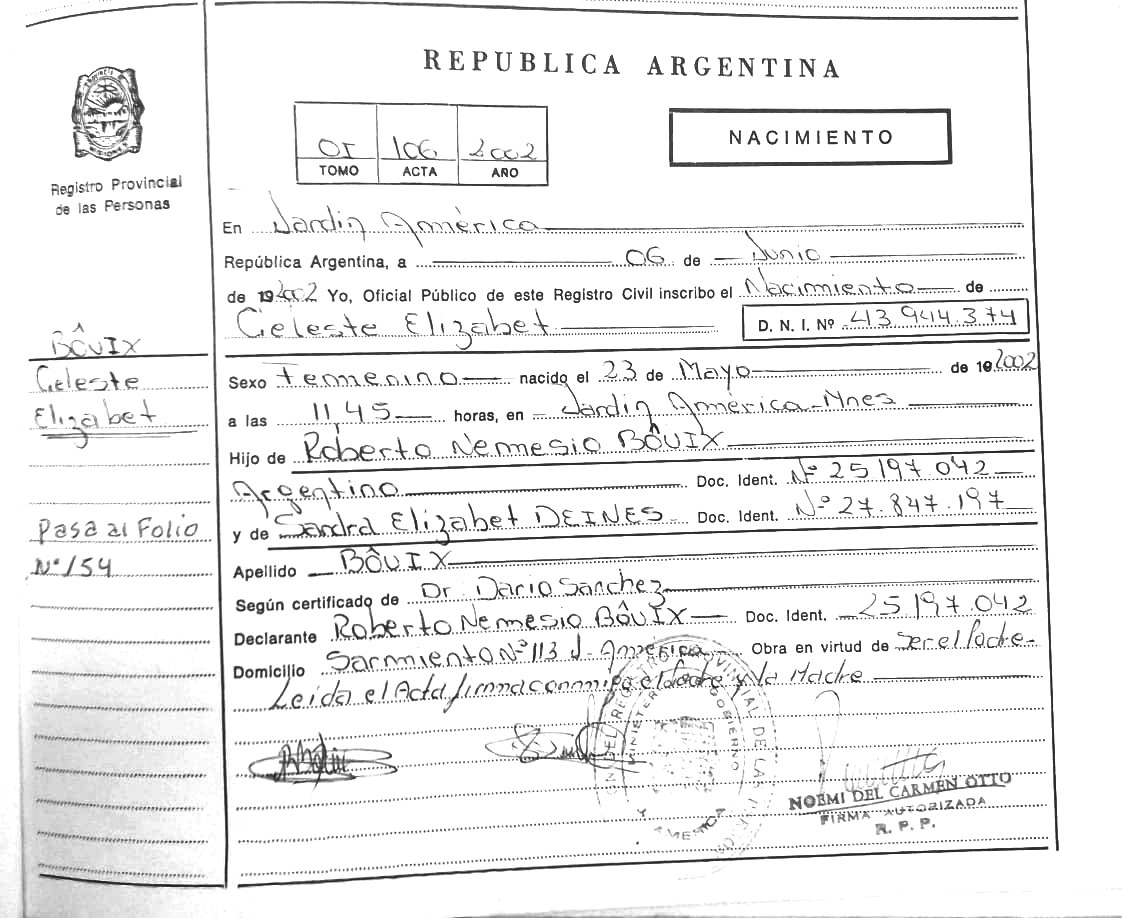 REPUBLICA ARGENTINA
OI 106 2002
TOMO ACTA AÑO
NACIMIENTO
Registro Provincial
de las Personas
En Jardin América
República Argentina, a 06 de Junio
de 192002 Yo, Oficial Público de este Registro Civil inscribo el Nacimiento de
Celeste Elizabet D. N. I. Nº 43 944.374
BÔUIX
Celeste
Elizabet
Sexo Femenino nacido el 23 de Mayo de 192002
a las 11,45 horas, en Jardin América-Mnes
Hijo de Roberto Nemesio BÔUIX
Argentino Doc. Ident. Nº 25 197.042
y de Sandra Elizabet DEINES Doc. Ident. Nº 27.847.197
Pasa al Folio
Nº 154
Apellido BÔUIX
Según certificado de Dr. Dario Sanchez
Declarante Roberto Nemesio BÔUIX Doc. Ident. 25.197.042
Domicilio Sarmiento Nº 113 J. América Obra en virtud de ser el Padre
Leida el Acta firma conmigo el Padre y la Madre
NOEMI DEL CARMEN OTTO
FIRMA AUTORIZADA
R. P. P.